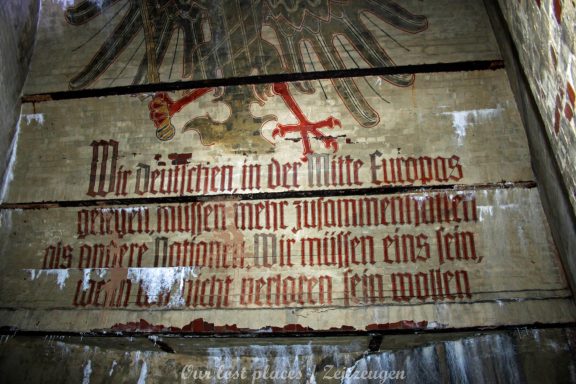 Wir Deutschen, in der Mitte Europas
gelegen, müssen mehr zusammenhalten
als andere Nationen. Wir müssen eins sein,
wenn wir nicht verloren sein wollen
Our lost places / Zeitzeugen